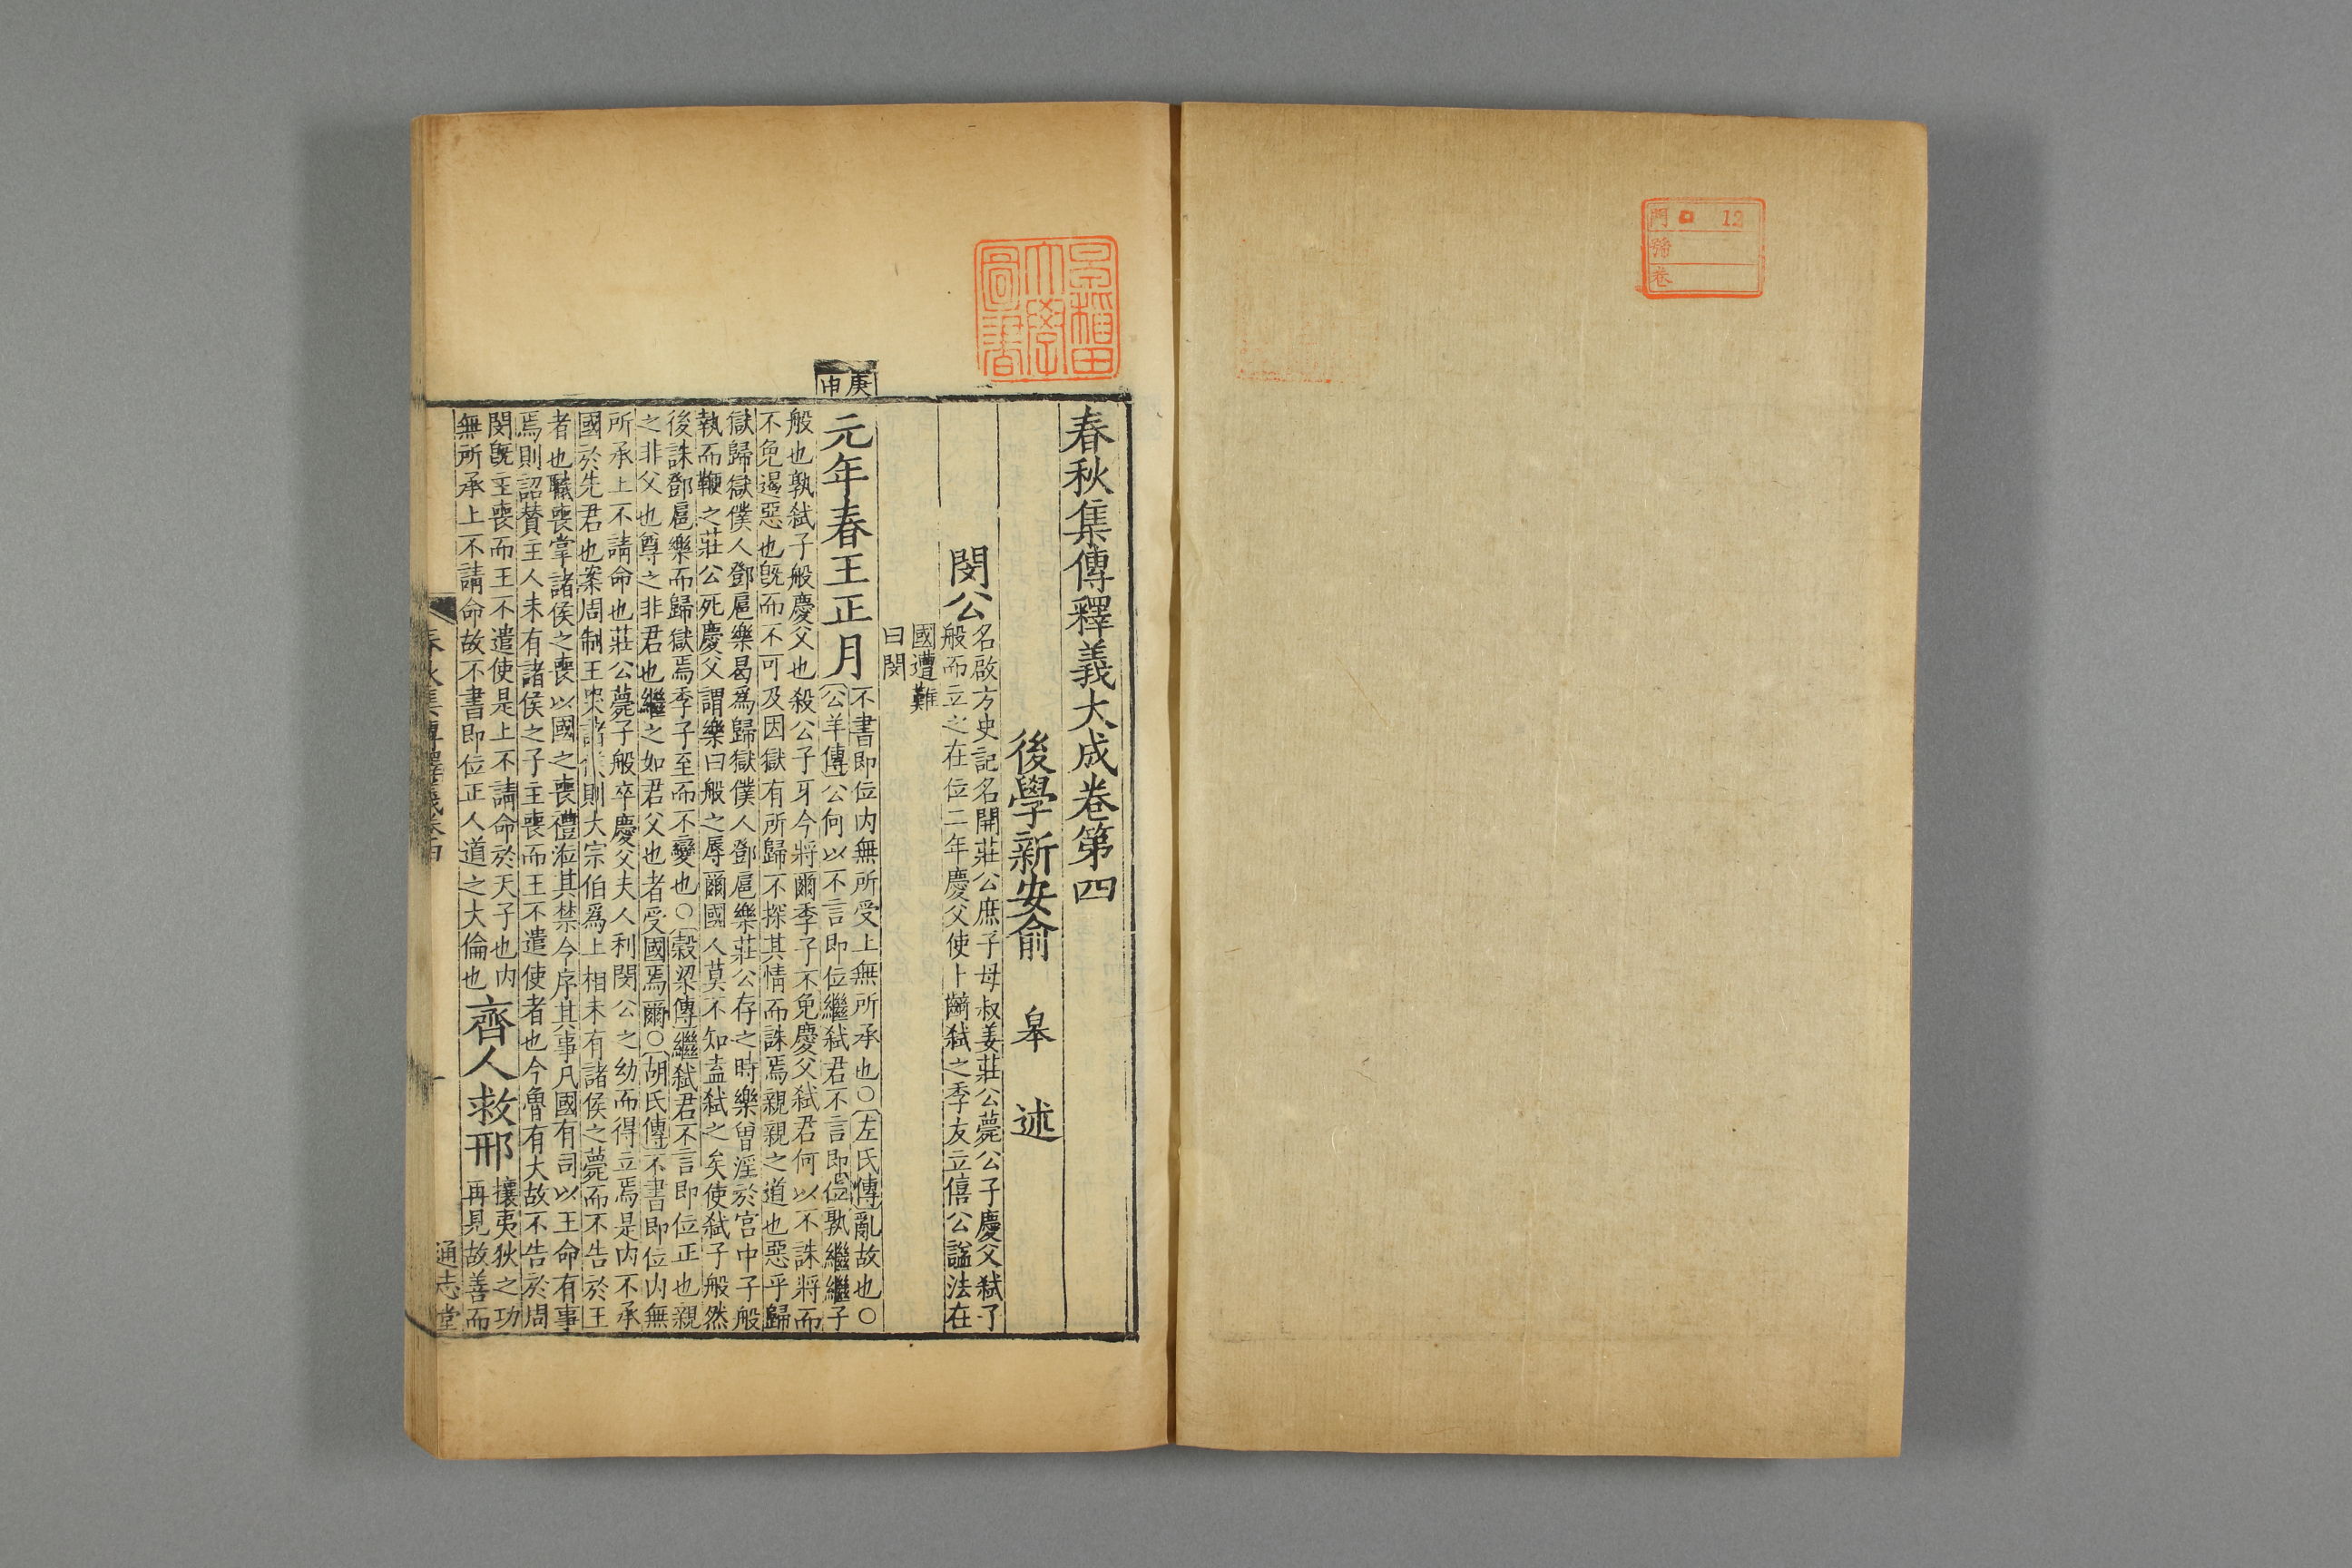 門 口 12
號
卷
早稲田
大學
圖書
春秋集傳釋義大成卷第四
後學新安俞 皋 述
閔公
名啟方史記名開莊公庶子母叔姜莊公薨公子慶父弑子
般而立之在位二年慶父使卜齮弑之季友立僖公諡法在
國遭難
曰閔
庚申
元年春王正月
不書即位内無所受上無所承也○左氏傳亂故也○
公羊傳公何以不言即位繼弑君不言即位孰繼繼子
般也孰弑子般慶父也殺公子牙今將爾季子不免慶父弑君何以不誅將而
不免遏惡也旣而不可及因獄有所歸不探其情而誅焉親親之道也惡乎歸
獄歸獄僕人鄧扈樂曷爲歸獄僕人鄧扈樂莊公存之時樂曾淫於宮中子般
執而鞭之莊公死慶父謂樂曰般之辱爾國人莫不知盍弑之矣使弑子般然
後誅鄧扈樂而歸獄焉季子至而不變也○穀梁傳繼弑君不言即位正也親
之非父也尊之非君也繼之如君父也者受國焉爾○胡氏傳不書即位内無
所承上不請命也莊公薨子般卒慶父夫人利閔公之幼而得立焉是内不承
國於先君也案周制王哭諸侯則大宗伯爲上相未有諸侯之薨而不告於王
者也職喪掌諸侯之喪以國之喪禮涖其禁令序其事凡國有司以王命有事
焉則詔贊主人未有諸侯之子主喪而王不遣使者也今魯有大故不告於周
閔旣主喪而王不遣使是上不請命於天子也内
無所承上不請命故不書即位正人道之大倫也
齊人救邢
攘夷狄之功
再見故善而
春秋集傳釋義卷四
一
通志堂